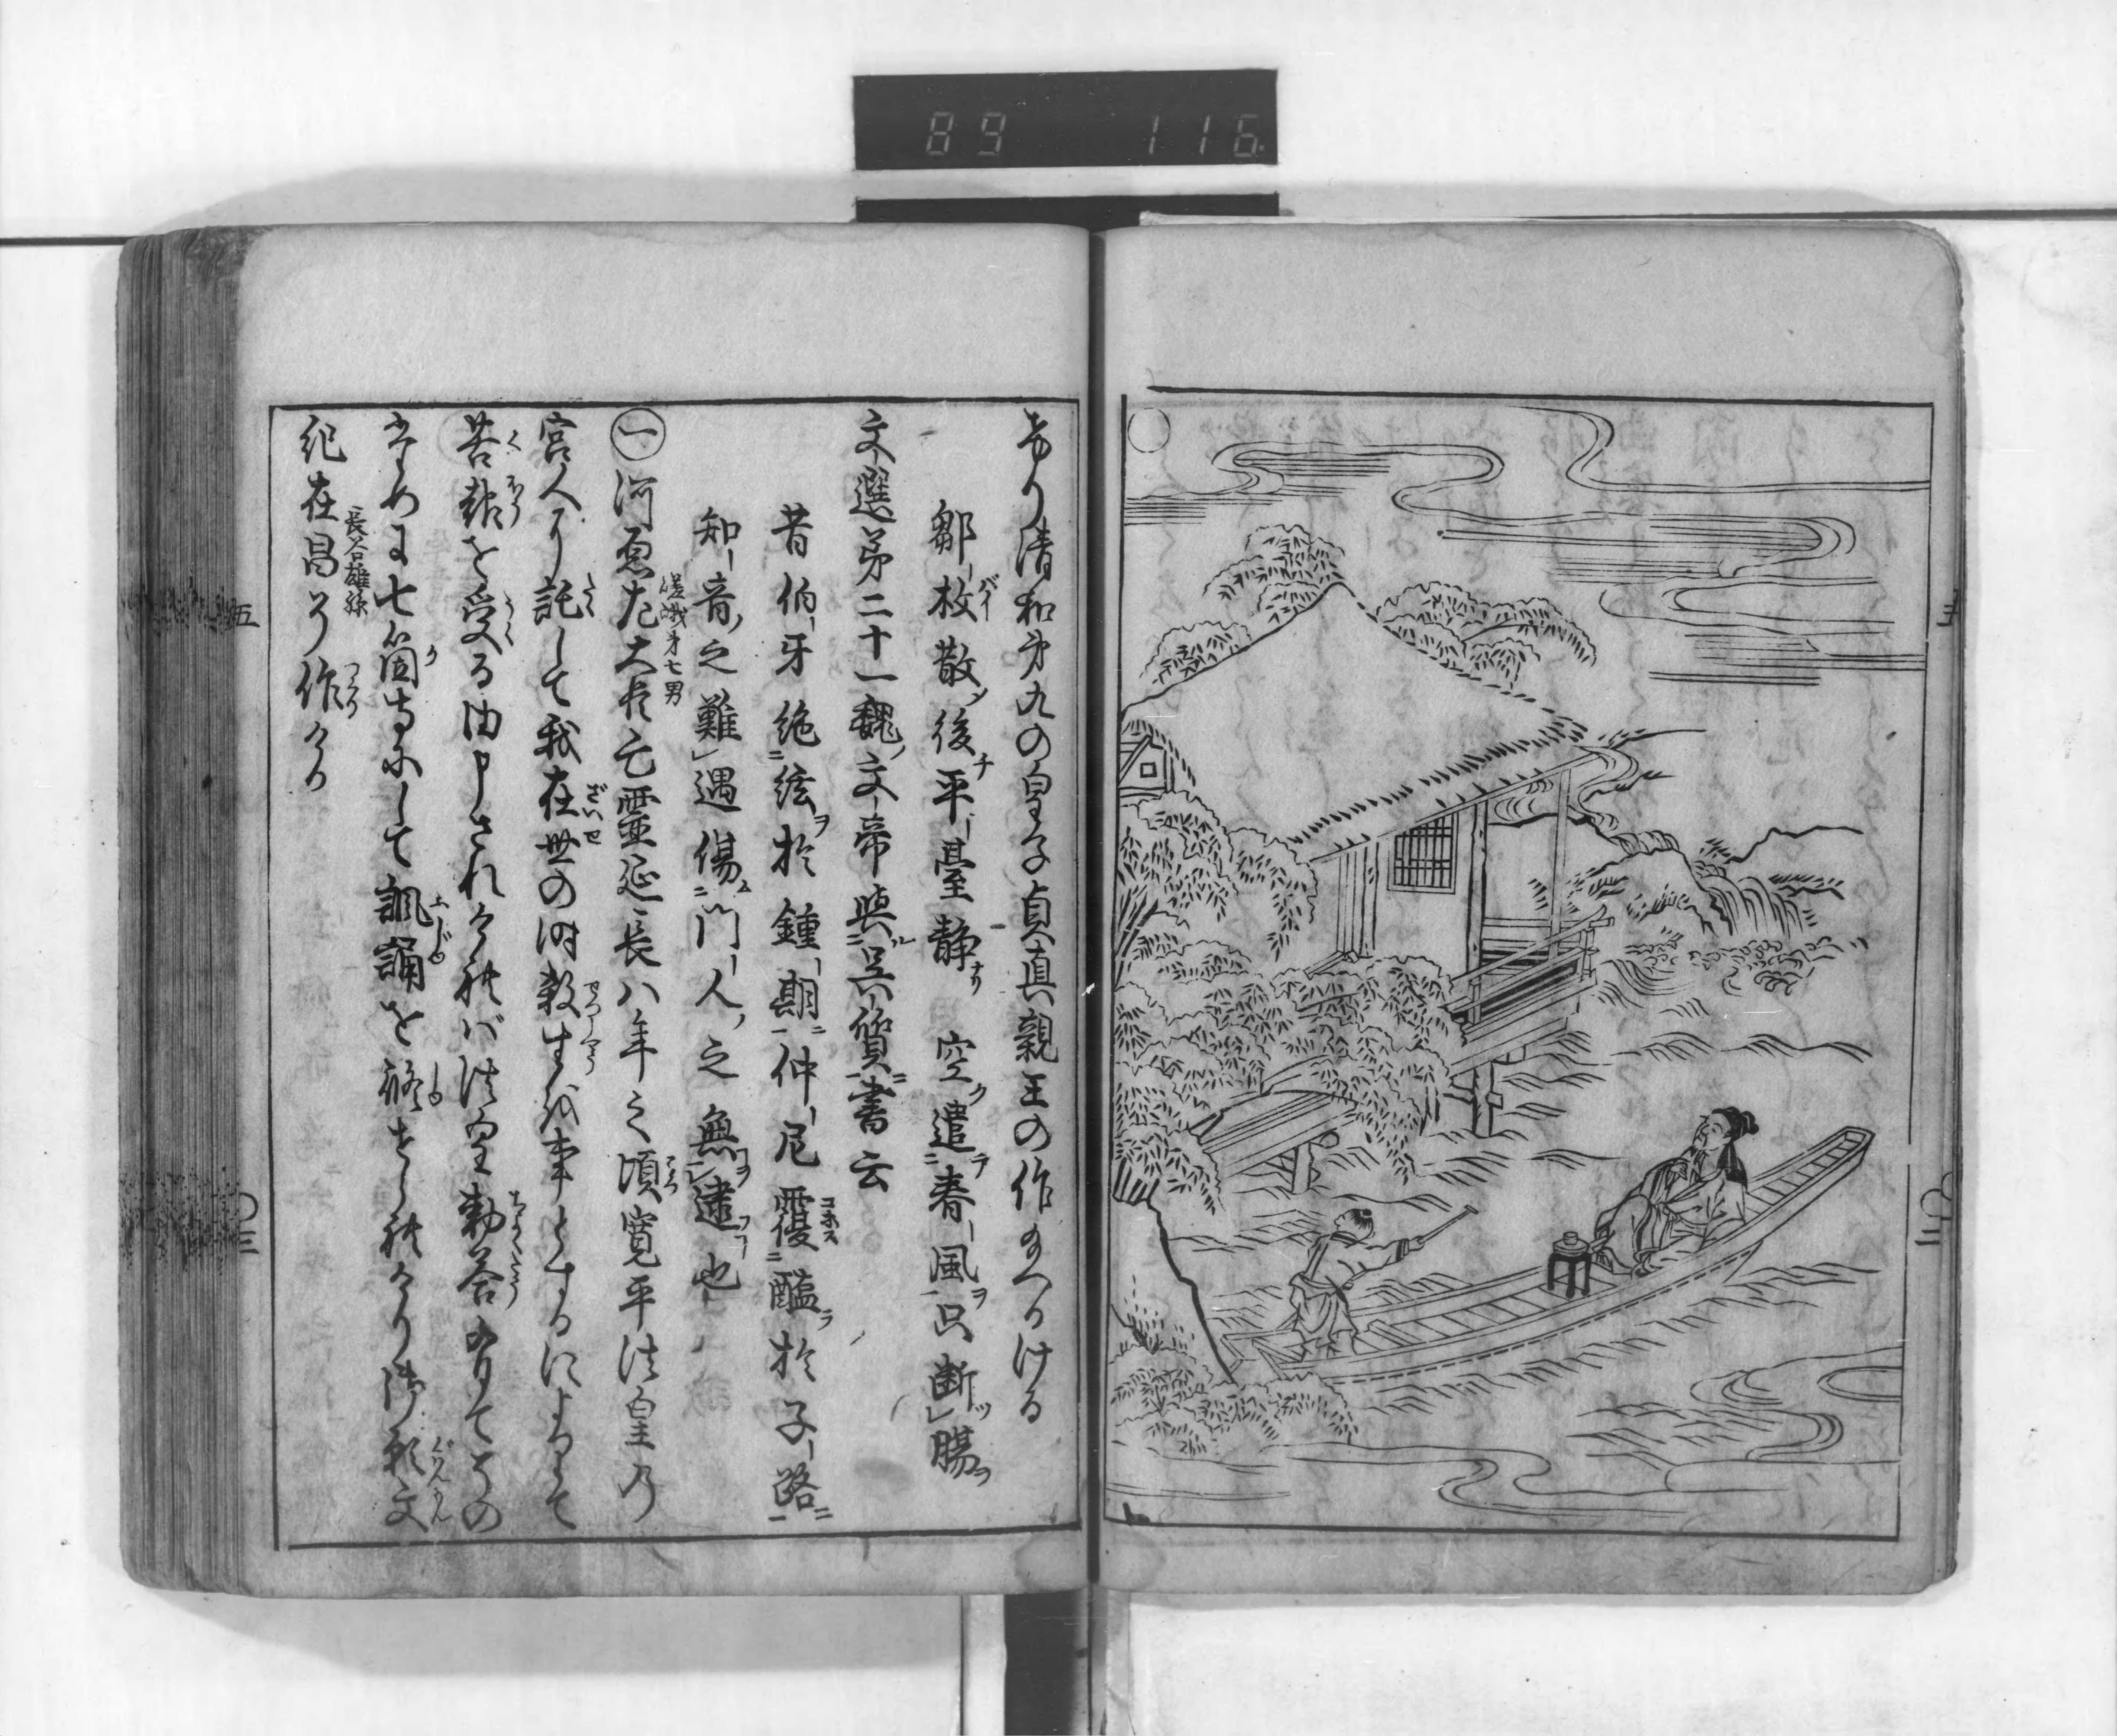 89 116
有り清和第九の皇子貞真親王の作給へりける
鄒枚散後平臺静 空遣春風只断腸
文選第二十一魏文帝與呉質書云
昔伯牙絶絃於鍾期仲尼覆醢於子路
知音之難遇傷門人之無逮也
㊀河原左大臣亡霊延長八年之頃寛平法皇乃
嵯峨第七男
宮人に託して我在世の時殺生を事とするによりて
苦報を受る由申されければ法皇勅答有てその
ために七箇寺にして諷誦を修せられけり御願文
紀在昌ぞ作ける
長谷雄孫
五